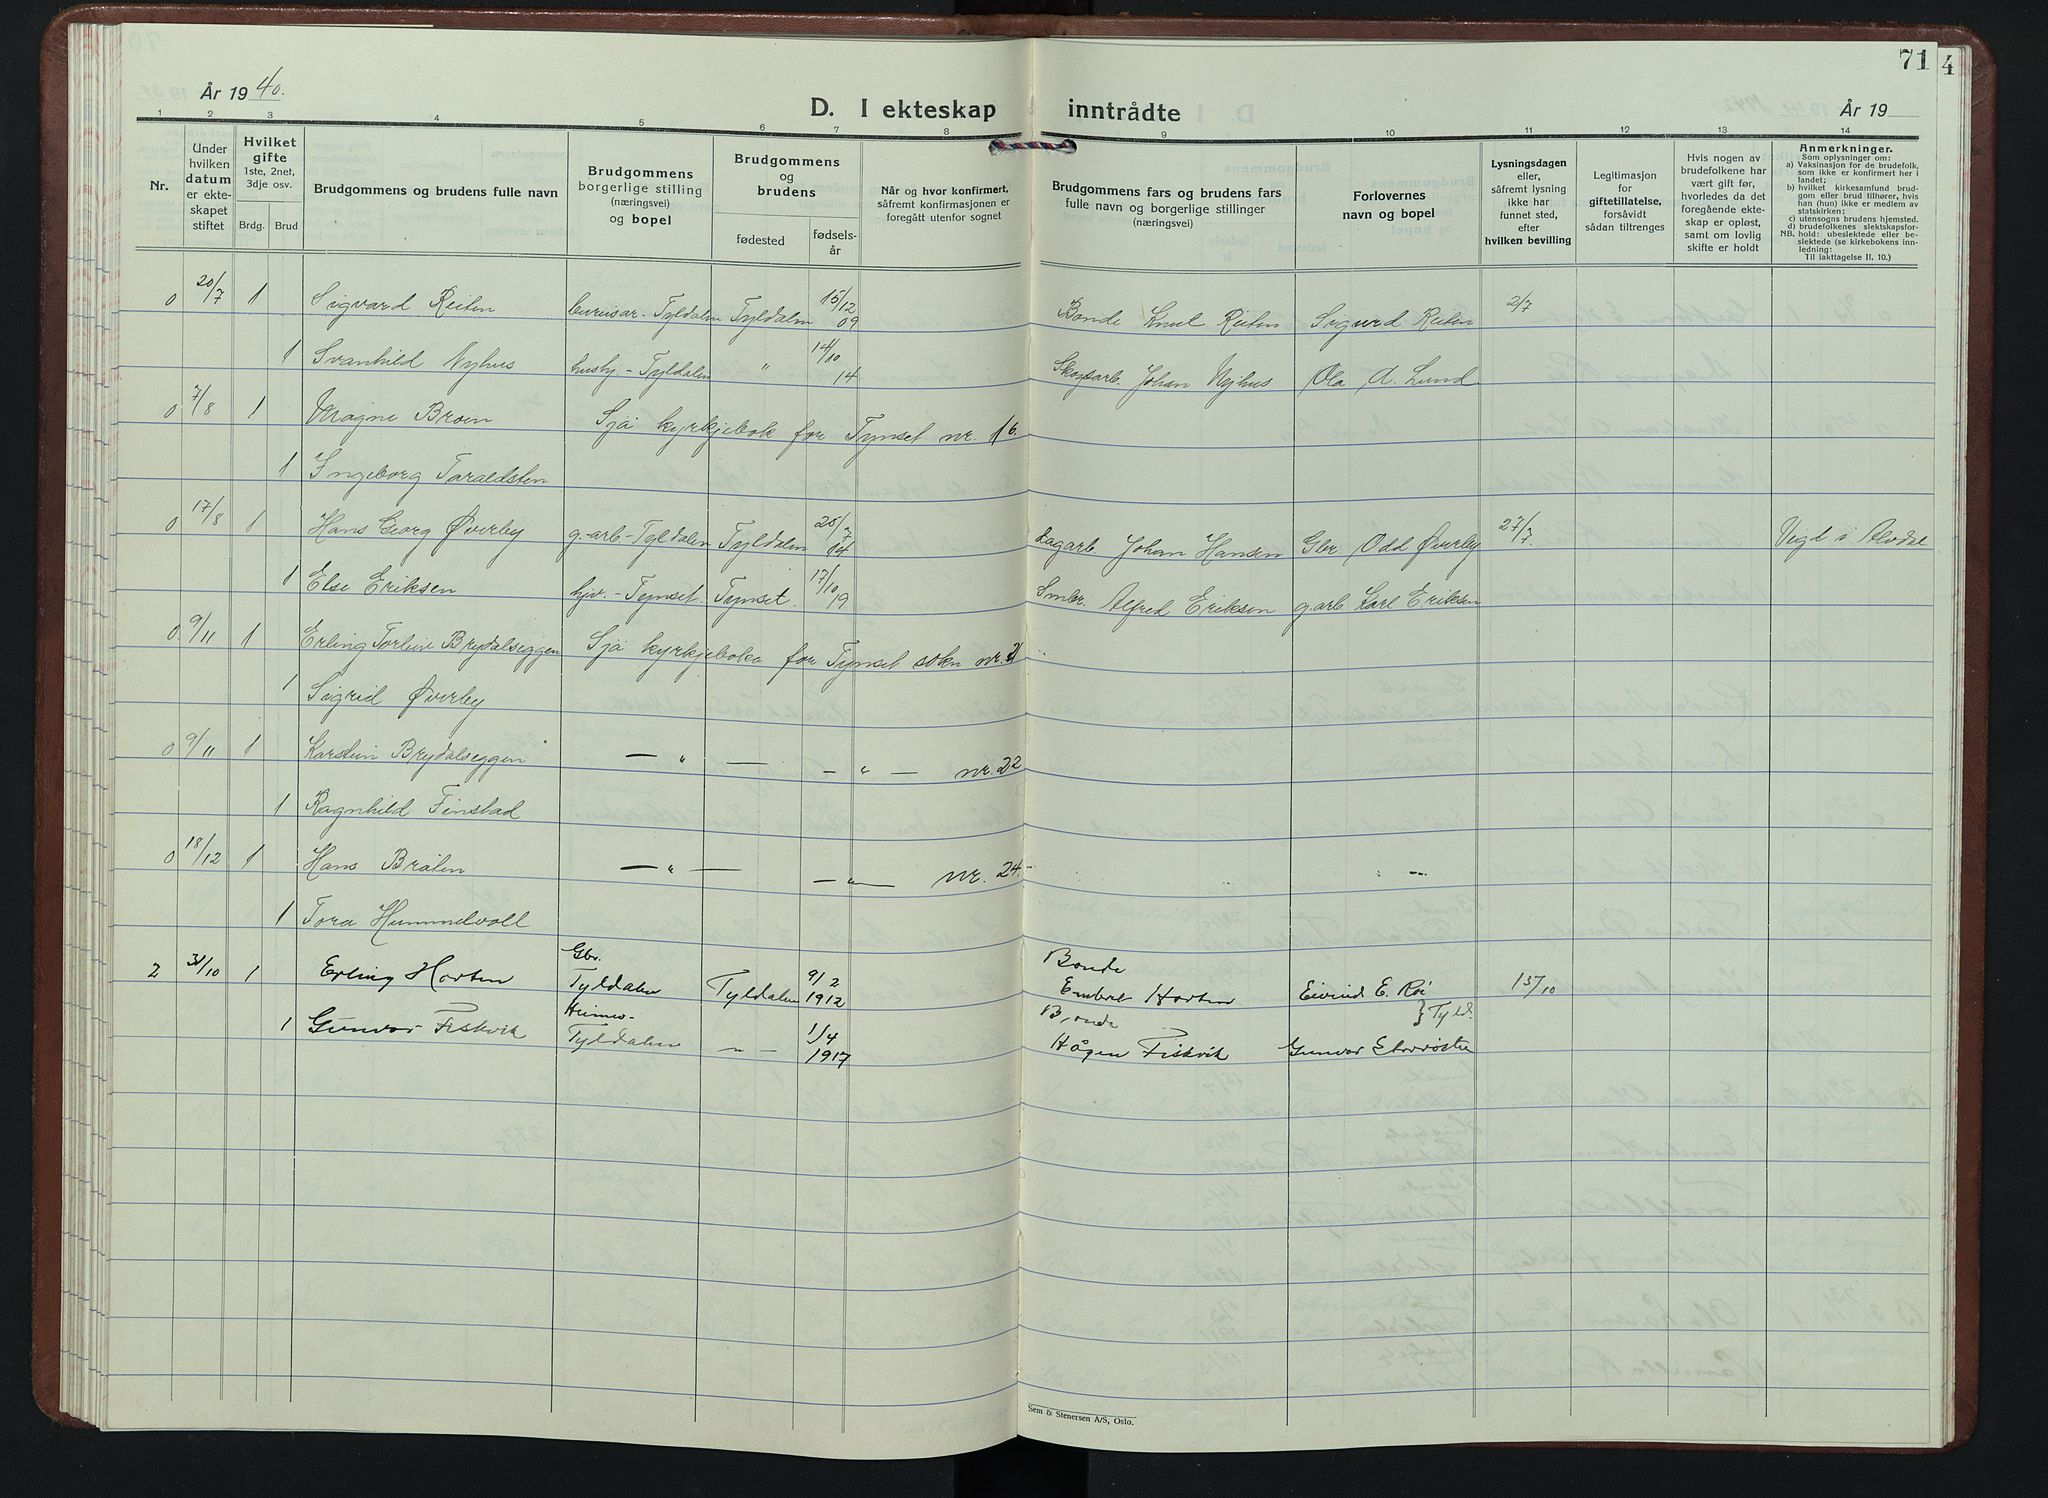 71
4
År 1940.
D. I ekteskap inntrådte
År 19
1 2 3 4 5 6 7 8 9 10 11 12 13 14
Nr.
Under hvilken datum er ekteskapet stiftet
Hvilket gifte 1ste, 2net, 3dje osv.
Brdg. Brud
Brudgommens og brudens fulle navn
Brudgommens borgerlige stilling (næringsvei) og bopel
Brudgommens og brudens
fødested
fødselsår
Når og hvor konfirmert, såfremt konfirmasjonen er foregått utenfor sognet
Brudgommens fars og brudens fars fulle navn og borgerlige stillinger (næringsvei)
Forlovernes navn og bopel
Lysningsdagen eller, såfremt lysning ikke har funnet sted, efter hvilken bevilling
Legitimasjon for giftetillatelse, forsåvidt sådan tiltrenges
Hvis nogen av brudefolkene har vært gift før, hvorledes da det foregående ekteskap er opløst, samt om lovlig skifte er holdt
Anmerkninger.
Som oplysninger om:
a) Vaksinasjon for de brudefolk, som ikke er konfirmert her i landet;
b) hvilket kirkesamfund brudgom eller brud tilhører, hvis han (hun) ikke er medlem av statskirken;
c) utensogns brudens hjemsted.
d) brudefolkenes slektskapsforhold: ubeslektede eller beslektede (se kirkebokens innledning:
NB.
Til iakttagelse II. 10.)
0 20/7 1 Sigvard Reiten Tyldalen Tyldalen 15/12 09 Bonde Knut Reiten Sigurd Reiten 2/7
1 Svanhild Nyhus hushj. - Tyldalen " 14/10 14 Skogsarb. Johan Nyhus Ola A. Lund
0 7/8 1 Magne Broen Sjå kyrkjebok for Tynset nr. 16.
1 Ingeborg Taraldsten
0 17/8 1 Hans Georg Øverby g.-arb - Tyldalen Tyldalen 25/7 14 Lagarb. Johan Hansen Gbr Odd Øverby 27/7. Vigd i Alvdal
1 Else Eriksen hjv. - Tynset. Tynset. 17/10 19 Smbr. Alfred Eriksen g.arb. Karl Eriksen
0 9/11 1 Erling Torleiv Brydalseggen Sjå kyrkjeboka for Tynset sokn nr. 21
1 Sigrid Øverby
0 9/11 1 Karstein Brydalseggen — " — — " — nr. 22
1 Ragnhild Finstad
0 18/12 1 Hans Bråten — " — — " — nr. 24.
1 Tora Hummelvoll
2 31/10 1 Erling Horten Gbr. Tyldalen Tyldalen 9/2 1912 Bonde Embret Horten Eivind E. Røe 15/10
1 Gunvor Fiskvik Heimev. Tyldalen — " — 1/4 1917 Bonde Hågen Fiskvik Gunvor } Tyld.
Sem & Stenersen A/S, Oslo.